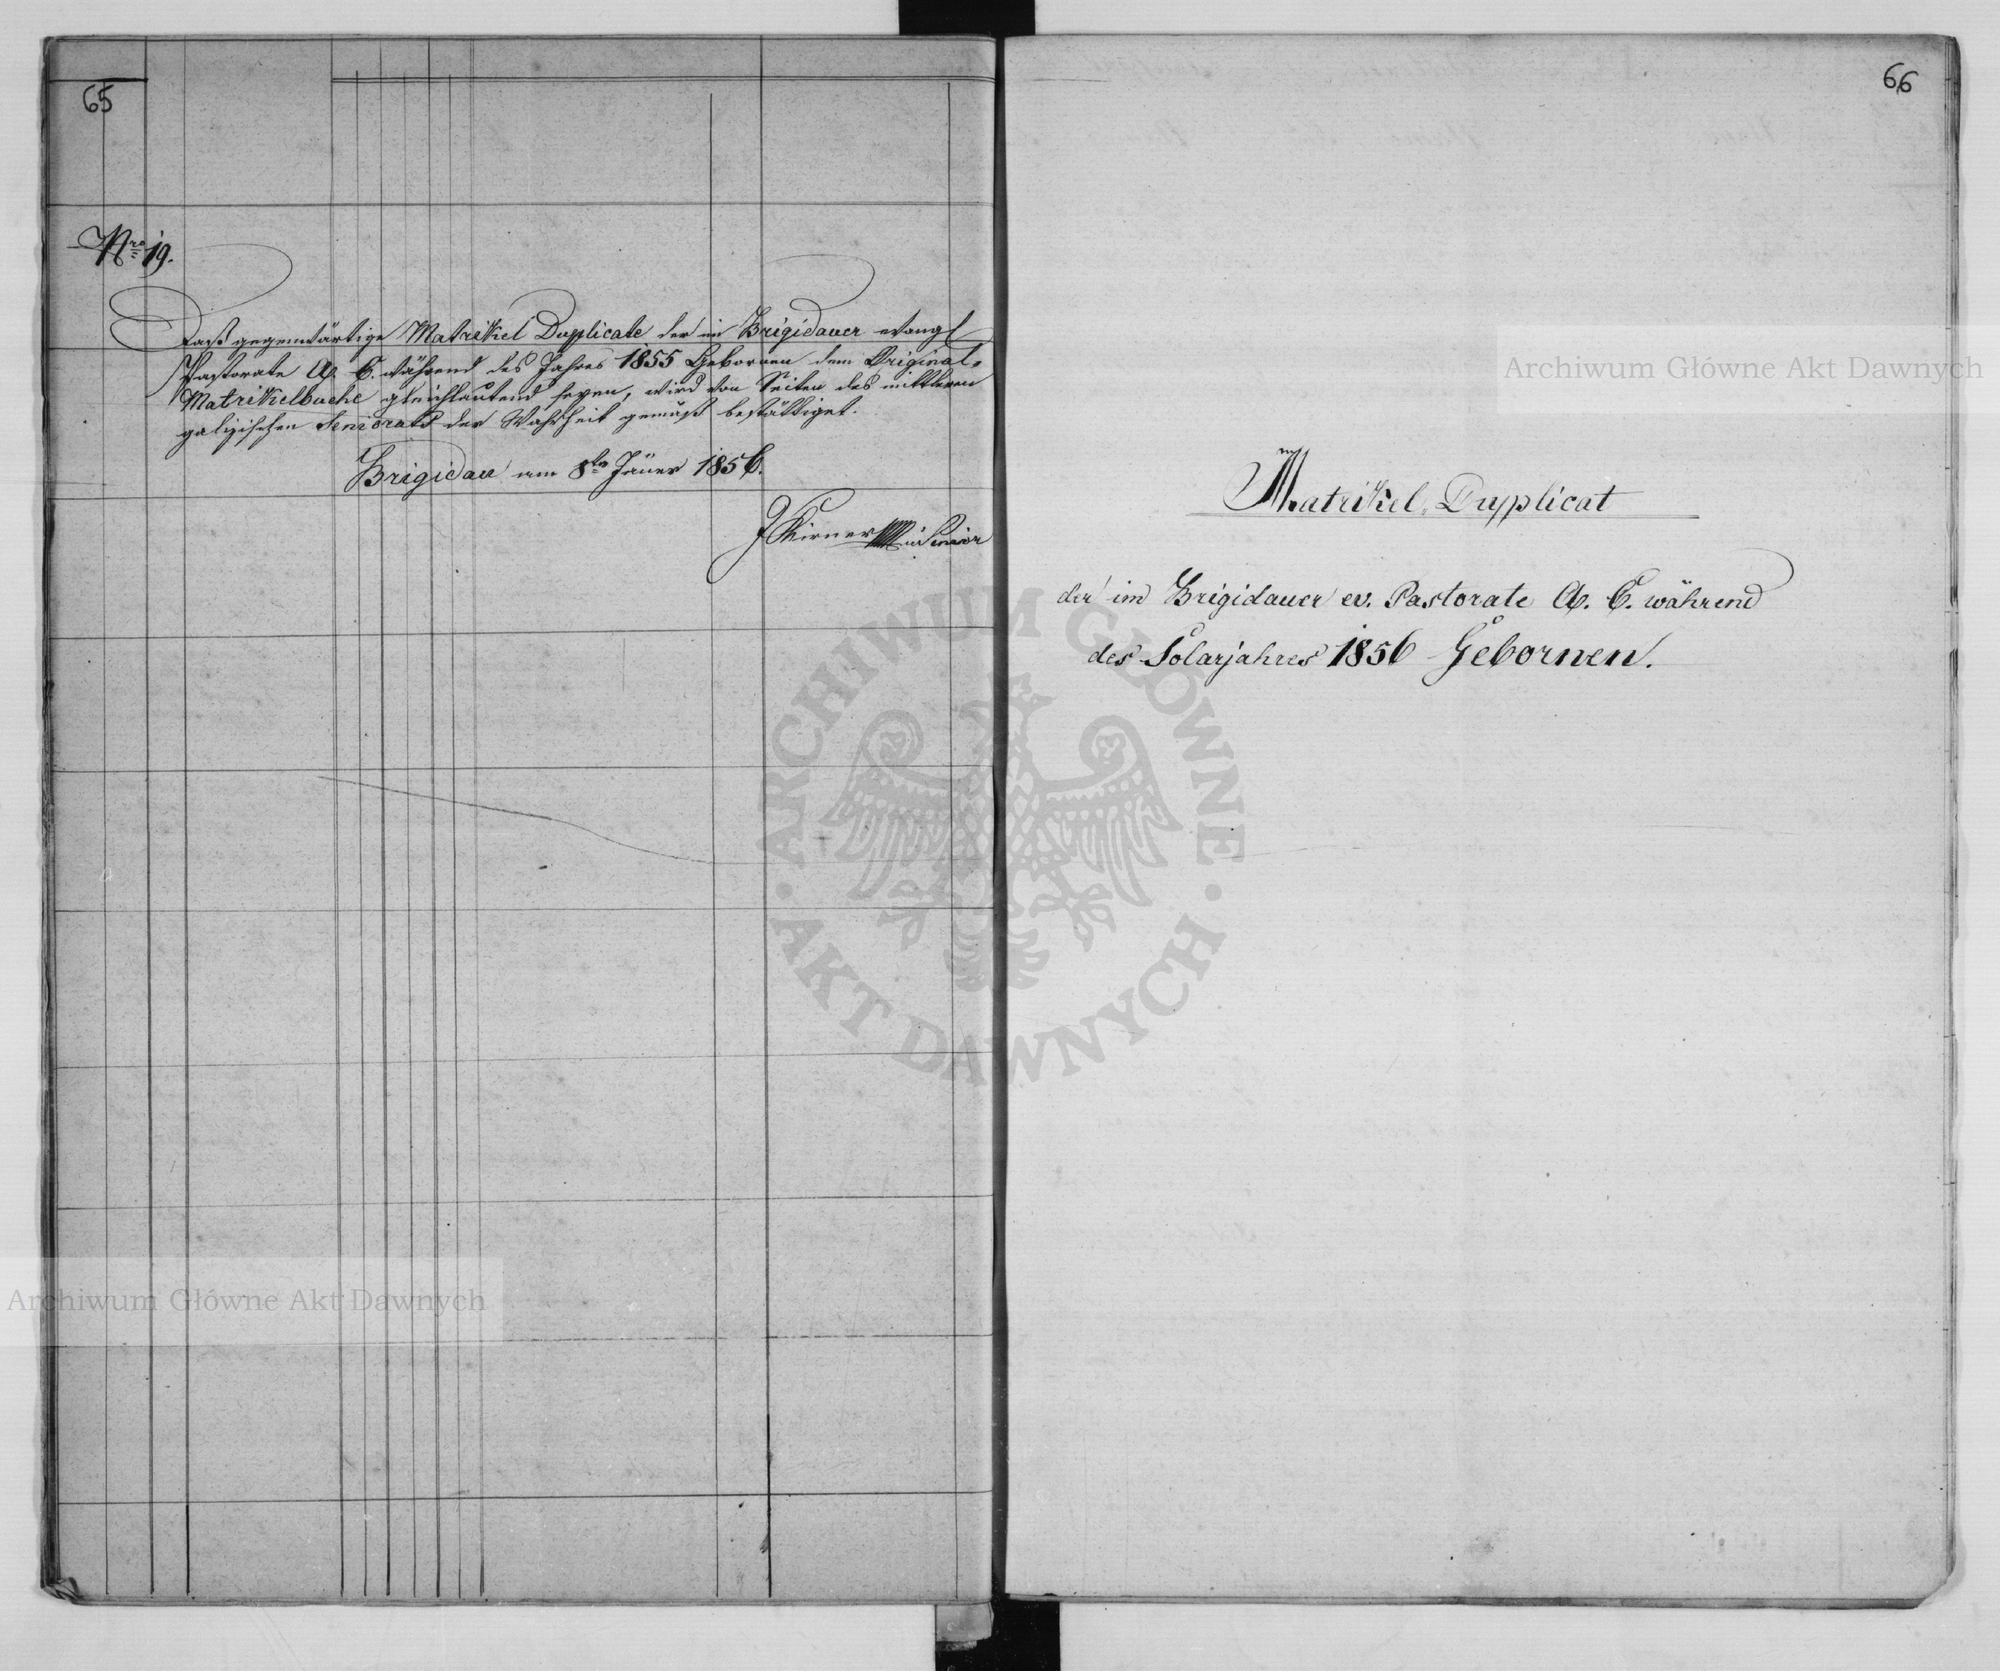 65
Nro 19.
Daß gegenwärtige Matrikel Duplicate der im Brigidauer evangl
Pastorate A. C. während des Jahres 1855 Gebornen dem Original-
Matrikelbuche gleichlautend seyen, wird von Seiten des mittleren
galizischen Seniorats der Wahrheit gemäß bestättiget.
Brigidau am 8ten Jäner 1856.
Senior
66
Matrikel-Dupplicat
der im Brigidauer ev. Pastorate A. C. während
des Solarjahres 1856 Gebornen.
Archiwum Główne Akt Dawnych
ARCHIWUM GŁÓWNE
AKT DAWNYCH
Archiwum Główne Akt Dawnych